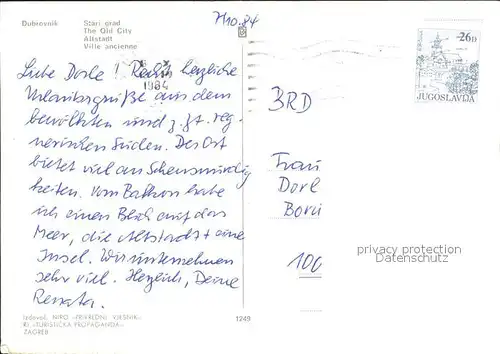 Dubrovnik
Stari grad
The Old City
Altstadt
Ville ancienne
7/10.84
26D
JUGOSLAVIJA
1984
Liebe Dorle! Recht herzliche
Urlaubsgrüße aus dem
bewölkten und z. Zt. reg-
nerischen Süden. Der Ort
bietet viel an Sehenswürdig
keiten. Vom Balkon habe
ich einen Blick auf das
Meer, die Altstadt + eine
Insel. Wir unternehmen
sehr viel. Herzlich, Deine
Renata.
BRD
Frau
Dorl
100
privacy protection
Datenschutz
Izdavač: NIRO »PRIVREDNI VJESNIK«
RJ »TURISTIČKA PROPAGANDA«
ZAGREB
1249